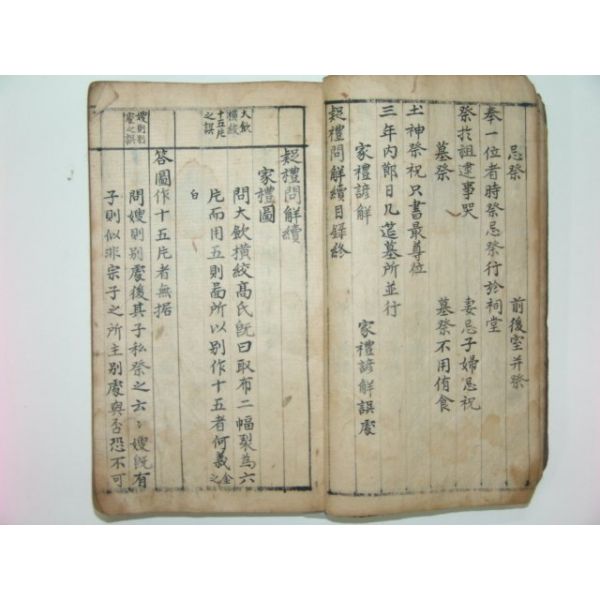 忌祭 前後室并祭
奉一位者時祭忌祭行於祠堂
祭於祖逮事哭 妻忌子婦忌祝
墓祭 墓祭不用侑食
土神祭祝只書最尊位
三年內節日几筵墓所並行
家禮諺解 家禮諺解誤處
疑禮問解續目錄終
疑禮問解續
家禮圖
大歛
橫絞
十五片
之誤
問大歛橫絞高氏旣曰取布二幅裂為六
片而用五則啚所以別作十五者何義金之
白
答圖作十五片者無据
嫂則別
處之誤
問嫂則別處後其子私祭之六〻嫂旣有
子則似非宗子之所主別處與否恐不可